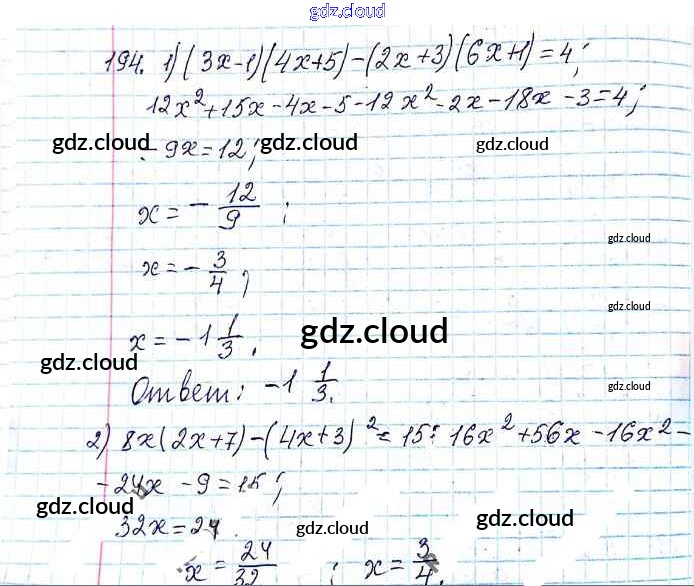 gdz.cloud
194. 1) (3x-1)(4x+5)-(2x+3)(6x+1)=4;
12x²+15x-4x-5-12x²-2x-18x-3=4;
gdz.cloud gdz.cloud gdz.cloud
-9x=12;
x=-12/9;
gdz.cloud
x=-3/4;
gdz.cloud
x=-1 1/3.
gdz.cloud gdz.cloud
Ответ: -1 1/3.
gdz.cloud
2) 8x(2x+7)-(4x+3)²=15; 16x²+56x-16x²-
-24x-9=15;
gdz.cloud gdz.cloud gdz.cloud
32x=24
x=24/32; x=3/4.